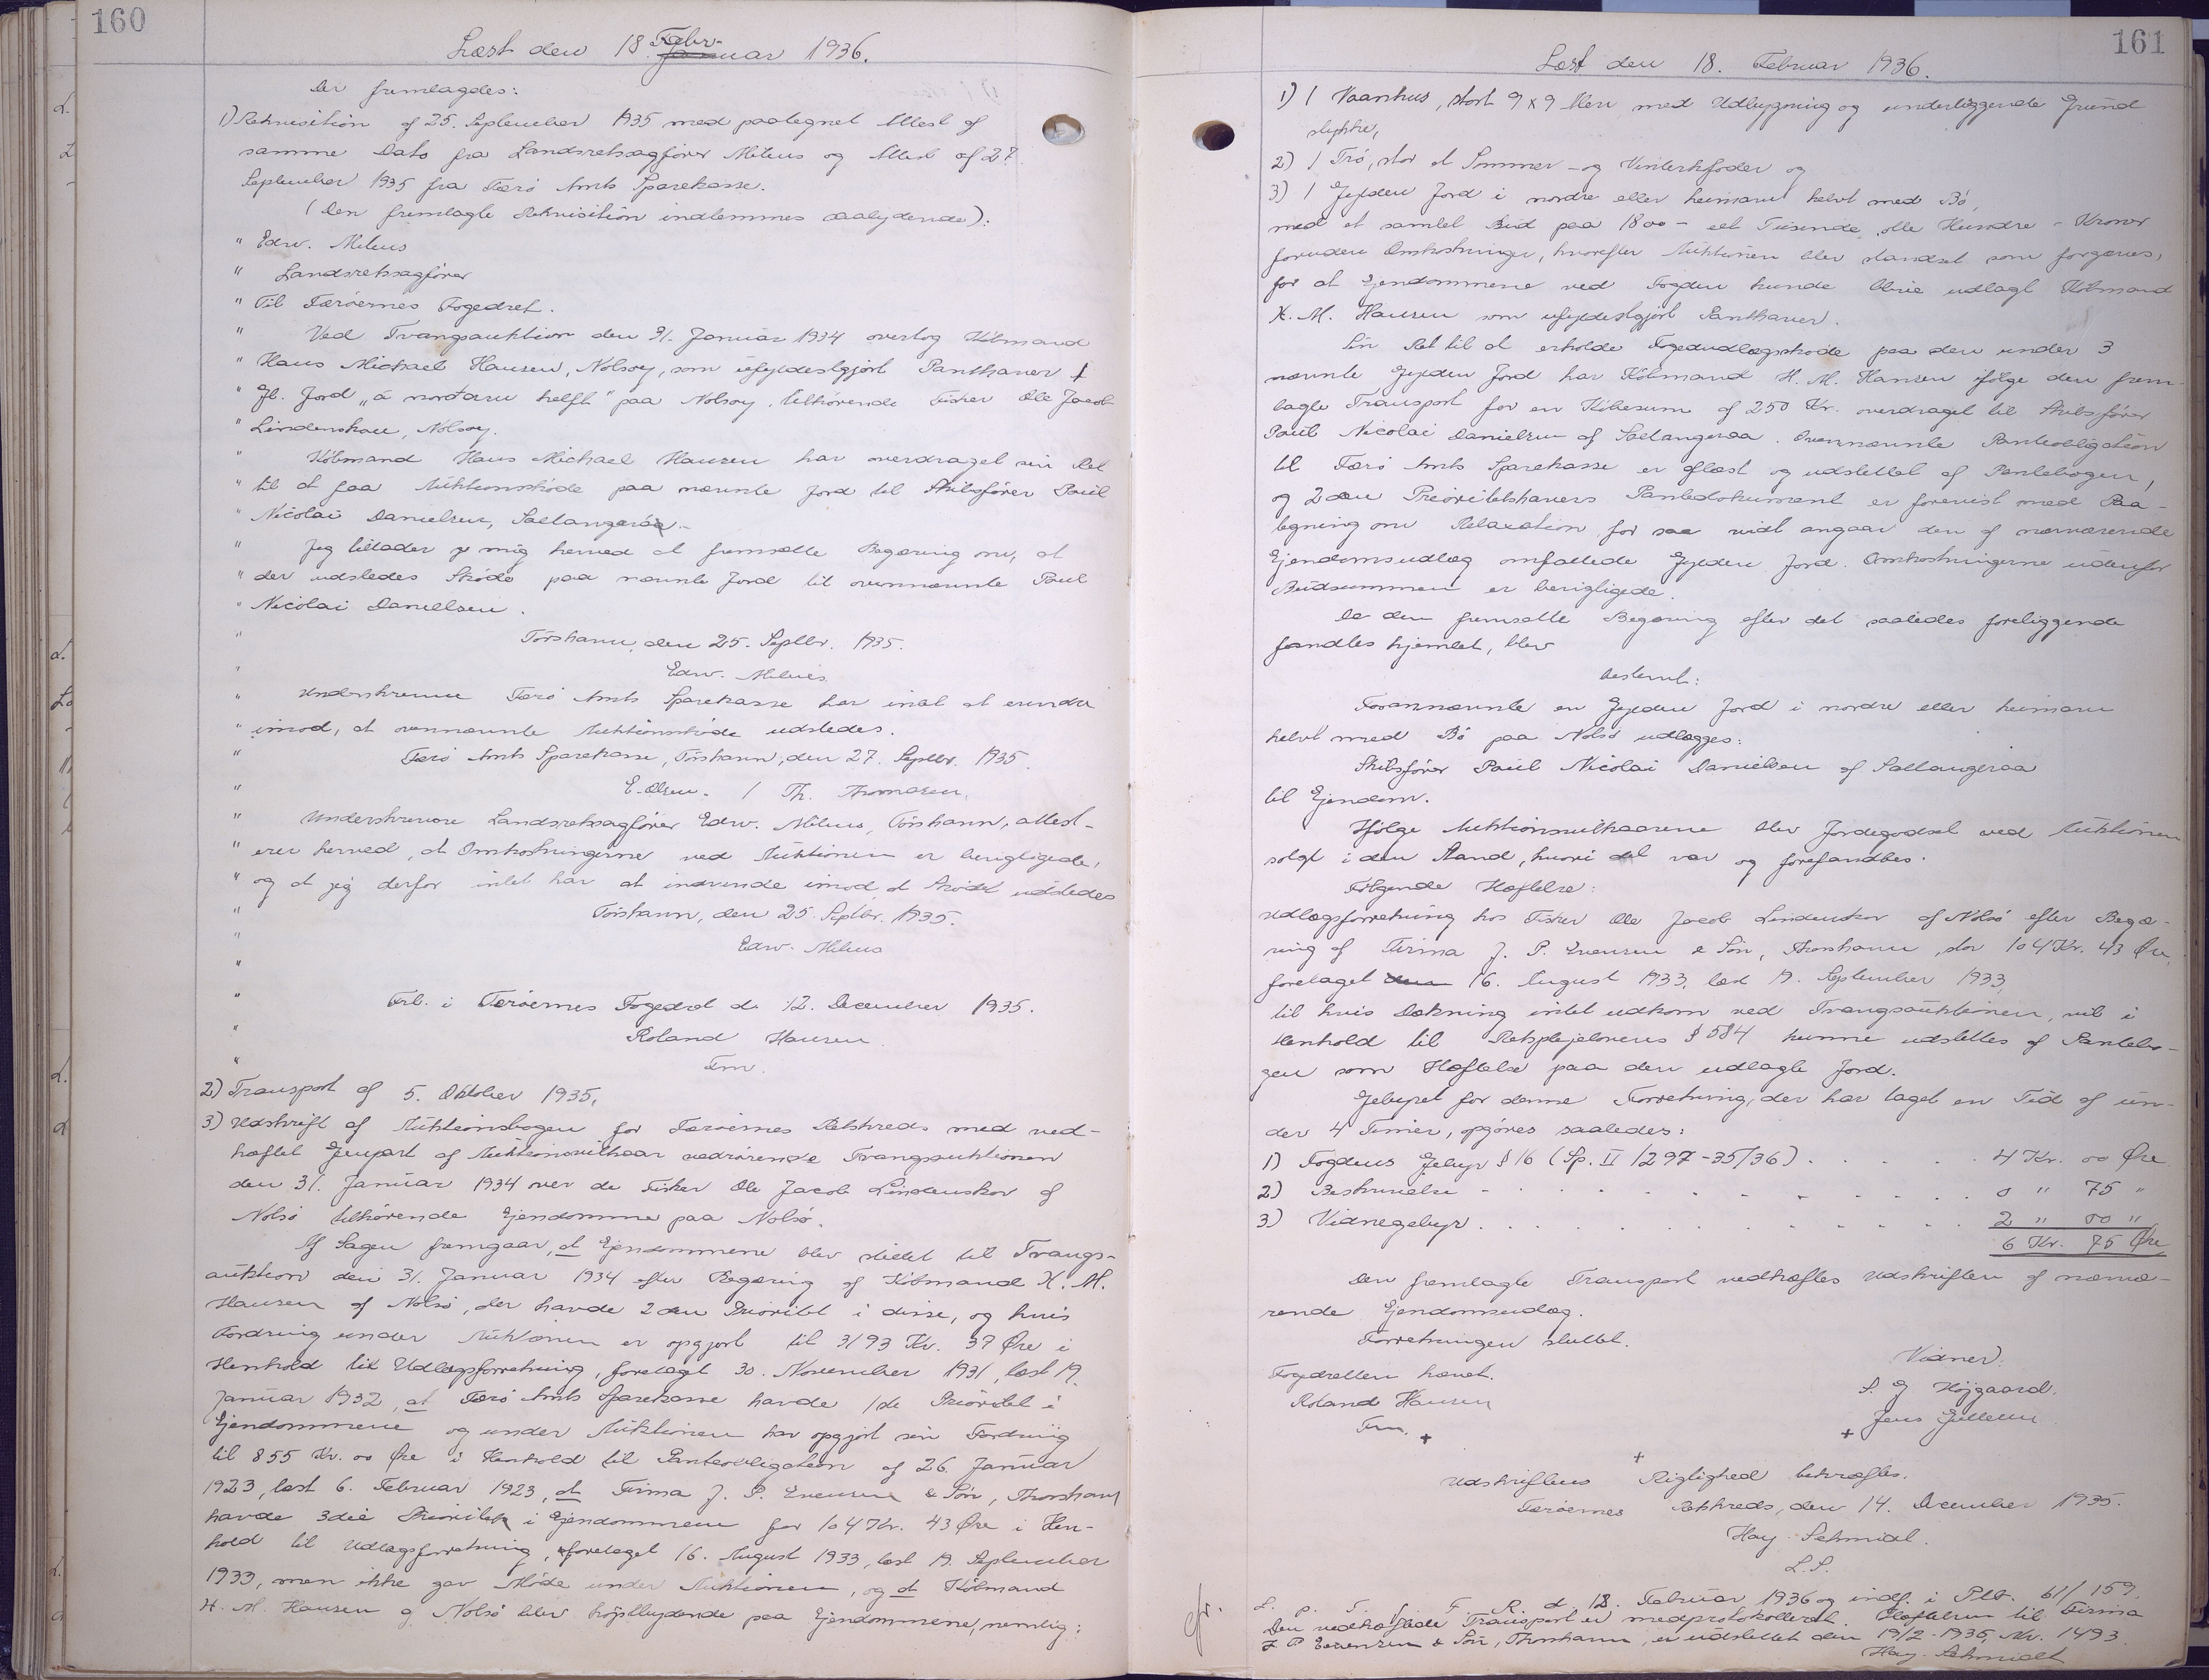 160
Læst den 18. Febr. Januar 1936.
Der fremlagdes:
1) Rekvisition af 25. September 1935 med paategnet Attest af
samme Dato fra Landsretssagfører Mitens og Attest af 27.
September 1935 fra Færø Amts Sparekasse.
(Den fremlagte Rekvisition indlemmes saalydende):
" Edw. Mitens
" Landsretssagfører
" Til Færøernes Fogedret.
" Ved Tvangsauktion den 31. Januar 1934 overtog Købmand
" Hans Michael Hansen, Nolsoy, som ufyldestgjort Panthaver 1
" Gl. Jord "á nordaru helft" paa Nolsoy, tilhørende Fisker Ole Jacob
" Lindenskov, Nolsoy.
" Købmand Hans Michael Hansen har overdraget sin Ret
" til at faa Auktionsskøde paa nævnte Jord til Skibsfører Poul
" Nicolai Danielsen, Saltangeraa.-
" Jeg tillader mig herved at fremsætte Begæring om, at
" der udstedes Skøde paa nævnte Jord til ovennævnte Poul
" Nicolai Danielsen.
" Tórshavn, den 25. Septbr. 1935.
" Edw. Mitens
" Underskrevne Færø Amts Sparekasse har intet at erindre
" imod, at ovennævnte Auktionsskøde udstedes.
" Færø Amts Sparekasse, Tórshavn, den 27. Septbr. 1935.
" E. Olsen. / Th. Thomasen.
" Underskrevne Landsretssagfører Edw. Mitens, Tórshavn, attest-
" erer herved, at Omkostningerne ved Auktionen er berigtigede,
" og at jeg derfor intet har at indvende imod at Skødet udstedes
" Tórshavn, den 25. Septbr. 1935.
" Edw. Mitens
"
" Frb. i Færøernes Fogedret d. 12. December 1935.
" Roland Hansen
" Fm.
2) Transport af 5. Oktober 1935.
3) Udskrift af Auktionsbogen for Færøernes Retskreds med ved-
hæftet Genpart af Auktionsvilkaar vedrørende Tvangsauktionen
den 31. Januar 1934 over de Fisker Ole Jacob Lindenskov af
Nolsø tilhørende Ejendomme paa Nolsø.
Af Sagen fremgaar, at Ejendommene blev stillet til Tvangs-
auktion den 31. Januar 1934 efter Begæring af Købmand H. M.
Hansen af Nolsø, der havde 2den Prioritet i disse, og hvis
Fordring under Auktionen er opgjort til 3193 Kr. 37 Øre i
Henhold til Udlægsforretning, foretaget 30. November 1931, læst 19.
Januar 1932, at Færø Amts Sparekasse havde 1ste Prioritet i
Ejendommene og under Auktionen har opgjort sin Fordring
til 855 Kr. 00 Øre i Henhold til Panteobligation af 26. Januar
1923, læst 6. Februar 1923, at Firma J. P. Evensen & Søn, Thorshavn
havde 3die Prioritet i Ejendommene for 104 Kr. 43 Øre i Hen-
hold til Udlægsforretning, foretaget 16. August 1933, læst 19. September
1933, men ikke gav Møde under Auktionen, og at Købmand
H. M. Hansen af Nolsø blev højstbydende paa Ejendommene, nemlig:
161
Læst den 18. Februar 1936.
1) 1 Vaanhus, stort 9 x 9 Alen med Udbygning og underliggende Grund
stykke,
2) 1 Tró, stor et Sommer- og Vinterkofoder og
3) 1 Gylden Jord i nordre eller heimaru helvt med Bø,
med et samlet Bud paa 1800 - eet Tusinde otte Hundre - Kroner
foruden Omkostninger, hvorefter Auktionen blev standset som forgæves,
for at Ejendommene ved Fogden kunde blive udlagt Købmand
H. M. Hansen som ufyldestgjort Panthaver.
Sin Ret til at erholde Fogedudlægsskøde paa den under 3
nævnte Gylden Jord har Købmand H. M. Hansen ifølge den frem-
lagte Transport for en Købesum af 250 Kr. overdraget til Skibsfører
Poul Nicolai Danielsen af Saltangeraa. Ovennævnte Panteobligation
til Færø Amts Sparekasse er aflæst og udslettet af Pantebogen,
og 2den Prioritetshavers Pantedokument er forevist med Paa-
tegning om Relaxation for saa vidt angaar den af nærværende
Ejendomsudlæg omfattede Gylden Jord. Omkostningerne udenfor
Budsummen er berigtigede.
Da den fremsatte Begæring efter det saaledes foreliggende
fandtes hjemlet, blev
bestemt:
Forannævnte en Gylden Jord i nordre eller heimaru
helvt med Bø paa Nolsø udlægges:
Skibsfører Poul Nicolai Danielsen af Saltangeraa
til Ejendom.
Ifølge Auktionsvilkaarene blev Jordegodset ved Auktionen
solgt i den Stand, hvori det var og forefandtes.
Følgende Hæftelse:
Udlægsforretning hos Fisker Ole Jacob Lindenskov af Nolsø efter Begæ-
ring af Firma J. P. Evensen & Søn, Thorshavn, stor 104 Kr. 43 Øre,
foretaget den 16. August 1933, læst 19. September 1933,
til hvis Dækning intet udkom ved Tvangsauktionen, vil i
Henhold til Retsplejelovens § 584 kunne udslettes af Pantebo-
gen som Hæftelse paa den udlagte Jord.
Gebyret for denne Forretning, der har taget en Tid af un-
der 4 Timer, opgøres saaledes:
1) Fogdens Gebyr § 16 (Sp. II 1297-35/36) . . . . . 4 Kr. 00 Øre
2) Beskrivelse - . . . . . . . . . 0 " 75 "
3) Vidnegebyr . . . . . . . . . . 2 " 00 "
6 Kr. 75 Øre
Den fremlagte Transport vedhæftes Udskriften af nærvæ-
rende Ejendomsudlæg.
Forretningen sluttet.
Fogedretten hævet.
Vidner:
Roland Hansen
S. J Højgaard.
Fm.
Jens
Udskriftens Rigtighed bekræftes.
Færøernes Retskreds, den 14. December 1935.
Hay-Schmidt.
L.S.
L. P. T. f. F. R. d. 18. Februar 1936 og indf. i Prot. 61/159.
Den vedhæftede Transport er medprotokolleret. Hæftelsen til Firma
J P Evensen & Søn, Thorshavn, er udslettet den 19/2-1936, Nr. 1493.
Hay-Schmidt